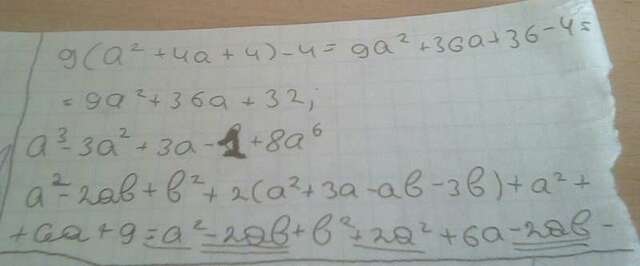 9(a² + 4a + 4) - 4 = 9a² + 36a + 36 - 4 =
= 9a² + 36a + 32;
a³ - 3a² + 3a - 1 + 8a⁶
a² - 2ab + b² + 2(a² + 3a - ab - 3b) + a² +
+ 6a + 9 = a² - 2ab + b² + 2a² + 6a - 2ab -